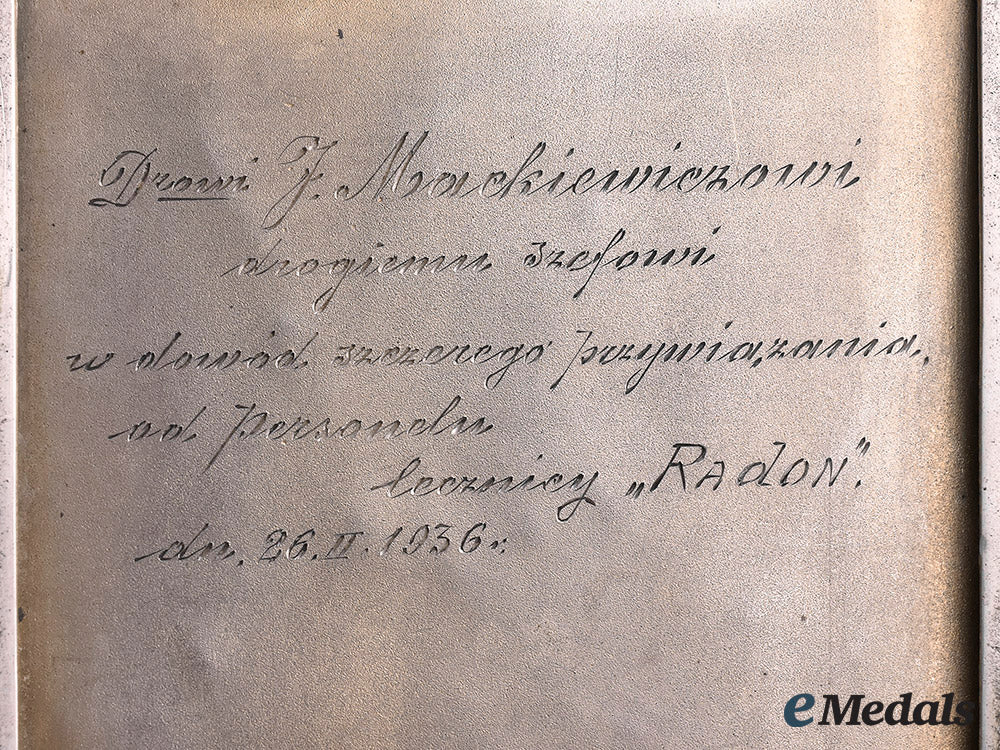 Drowi J. Mackiewiczowi
drogiemu szefowi
w dowód szczerego przywiązania,
od personelu
lecznicy „RAdON”.
dn. 26.II.1936r.
eMedals